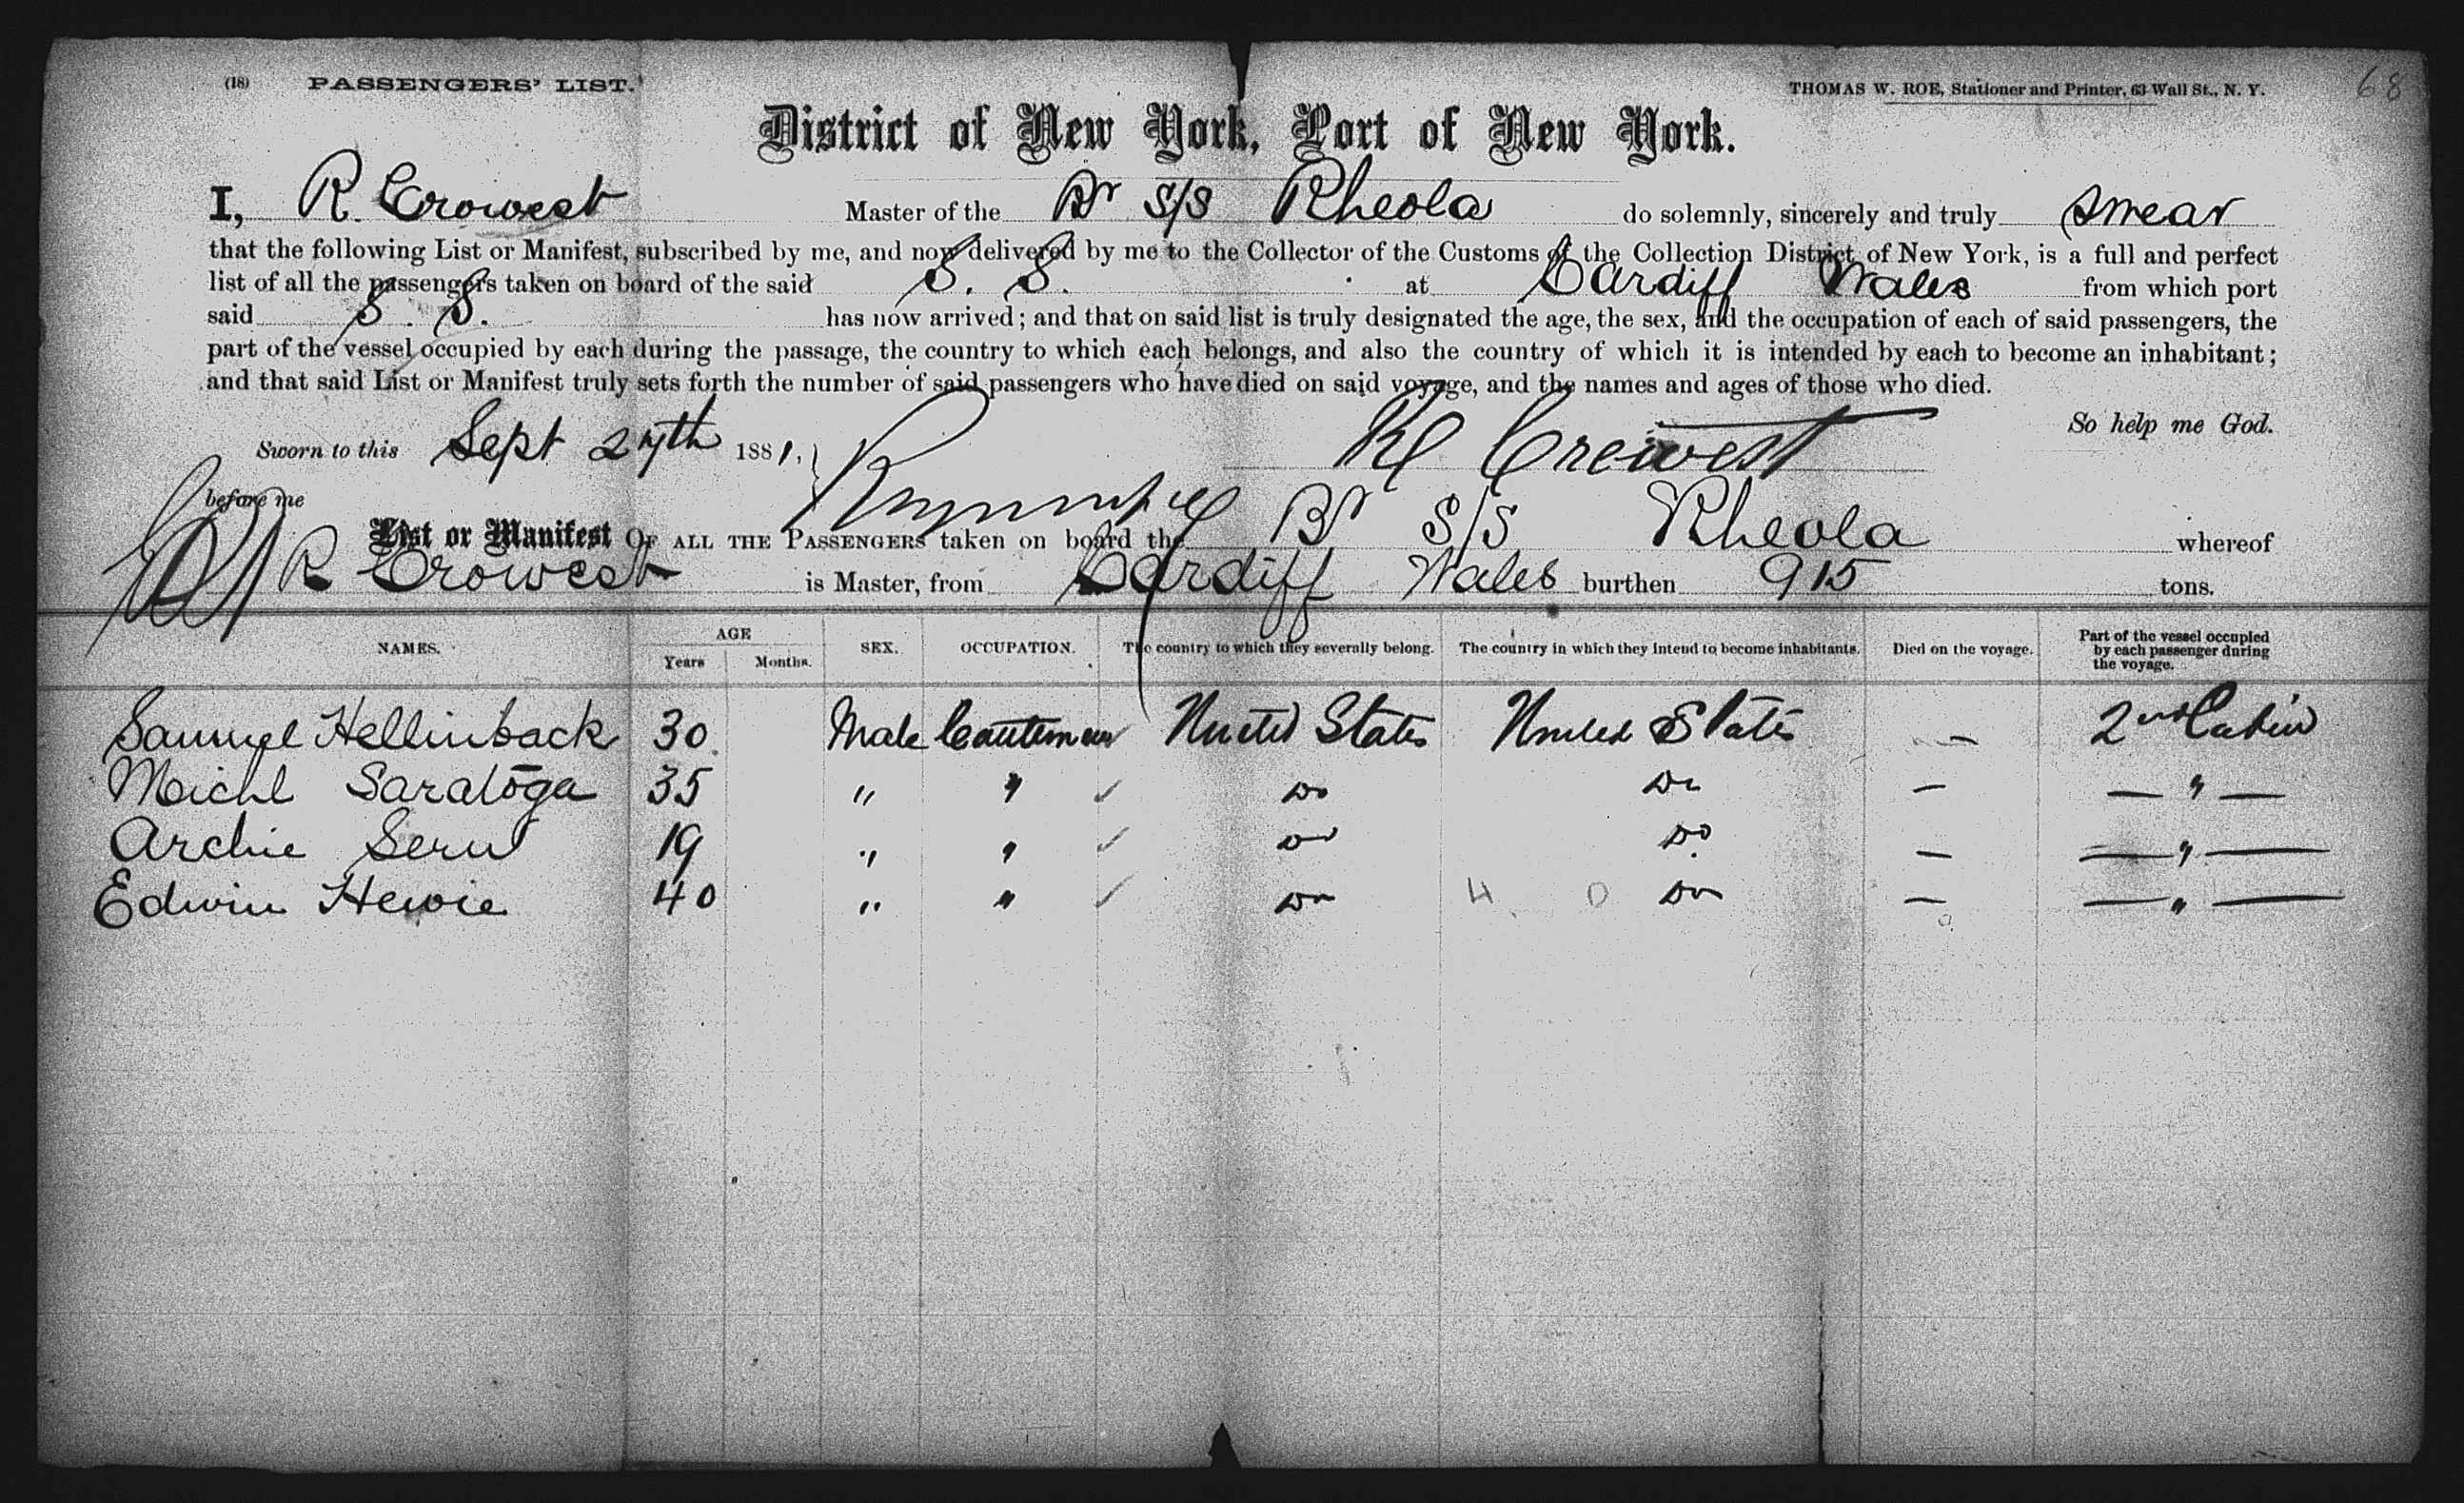 (18) PASSENGERS' LIST. THOMAS W. ROE, Stationer and Printer, 63 Wall St., N. Y. 68
District of New York, Port of New York.
I, R. Crowest Master of the Br S/S Rheola do solemnly, sincerely and truly swear
that the following List or Manifest, subscribed by me, and now delivered by me to the Collector of the Customs of the Collection District of New York, is a full and perfect
list of all the passengers taken on board of the said S. S. at Cardiff Wales from which port
said S. S. has now arrived; and that on said list is truly designated the age, the sex, and the occupation of each of said passengers, the
part of the vessel occupied by each during the passage, the country to which each belongs, and also the country of which it is intended by each to become an inhabitant;
and that said List or Manifest truly sets forth the number of said passengers who have died on said voyage, and the names and ages of those who died.
So help me God.
Sworn to this Sept 27th 1881. Crowest
before me
List or Manifest OF ALL THE PASSENGERS taken on board the Br S/S Rheola whereof
R Crowest is Master, from Cardiff Wales burthen 915 tons.
NAMES. AGE Years Months. SEX. OCCUPATION. The country to which they severally belong. The country in which they intend to become inhabitants. Died on the voyage. Part of the vessel occupied by each passenger during the voyage.
Samuel Hellinback 30 Male United States United States — 2nd Cabin
Michl Saratoga 35 " " Do Do — — " —
Archie 19 " " Do Do — — " —
Edwin Hewie 40 " " Do 4 0 Do — — " —